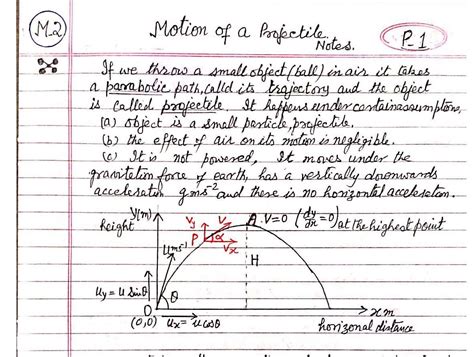 M.2
Motion of a Projectile
Notes.
P-1
If we throw a small object (ball) in air it takes
a parabolic path, calld its trajectory and the object
is called projectile. It happens under certain assumptons.
(a) object is a small particle, projectile.
(b) the effect of air on its motion is negligible.
(c) It is not powered, It moves under the
gravitation force of earth, has a vertically downwards
acceleration g ms⁻² and there is no horizontal acceleration.
y(m)
height
Vy
V
A V=0 (dy/dx = 0) at the highest point
P
α
Vx
u ms⁻¹
H
uy = u sinθ
θ
O
x m
(0,0) ux = u cosθ
horizonal distance